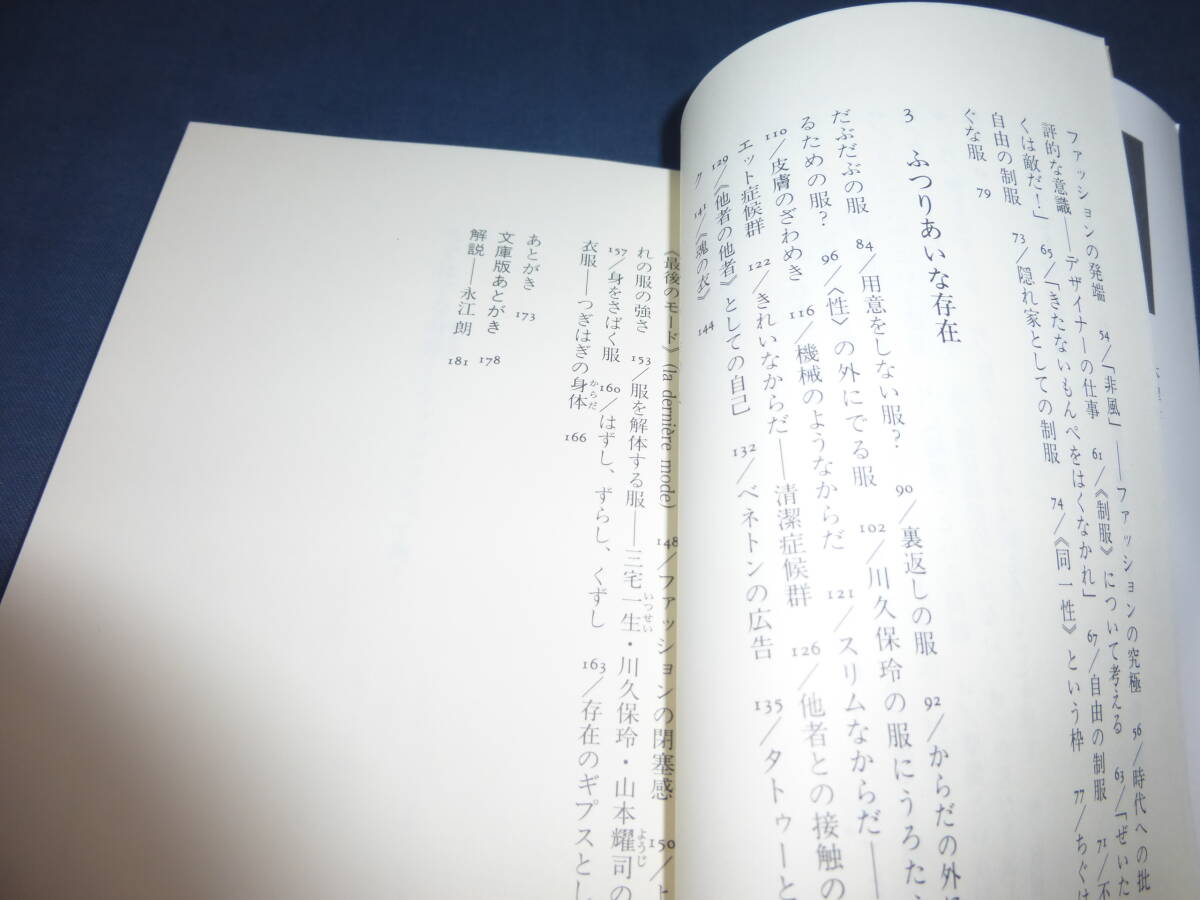 ファッションの発端 54/「非風」——ファッションの究極 56/時代への批
評的な意識——デザイナーの仕事 61/《制服》について考える 63/「ぜいた
くは敵だ！」 65/「きたないもんぺをはくなかれ」 67/自由の制服 71/不
自由の制服 73/隠れ家としての制服 74/《同一性》という枠 77/ちぐは
ぐな服 79
3 ふつりあいな存在
だぶだぶの服 84/用意をしない服？ 90/裏返しの服 92/からだの外
るための服？ 96/〈性〉の外にでる服 102/川久保玲の服にうろた
110/皮膚のざわめき 116/機械のようなからだ 121/スリムなからだ——
エット症候群 122/きれいなからだ——清潔症候群 126/他者との接触の
129/《他者の他者》としての自己 132/ベネトンの広告 135/タトゥーと
ク 141/《魂の衣》 144
《最後のモード》(la dernière mode) 148/ファッションの閉塞感 150/よ
れの服の強さ 153/服を解体する服——三宅一生いっせい・川久保玲・山本耀司ようじの
157/身をさばく服 160/はずし、ずらし、くずし 163/存在のギプスとし
衣服——つぎはぎの身体からだ 166
あとがき 173
文庫版あとがき 178
解説——永江 朗 181